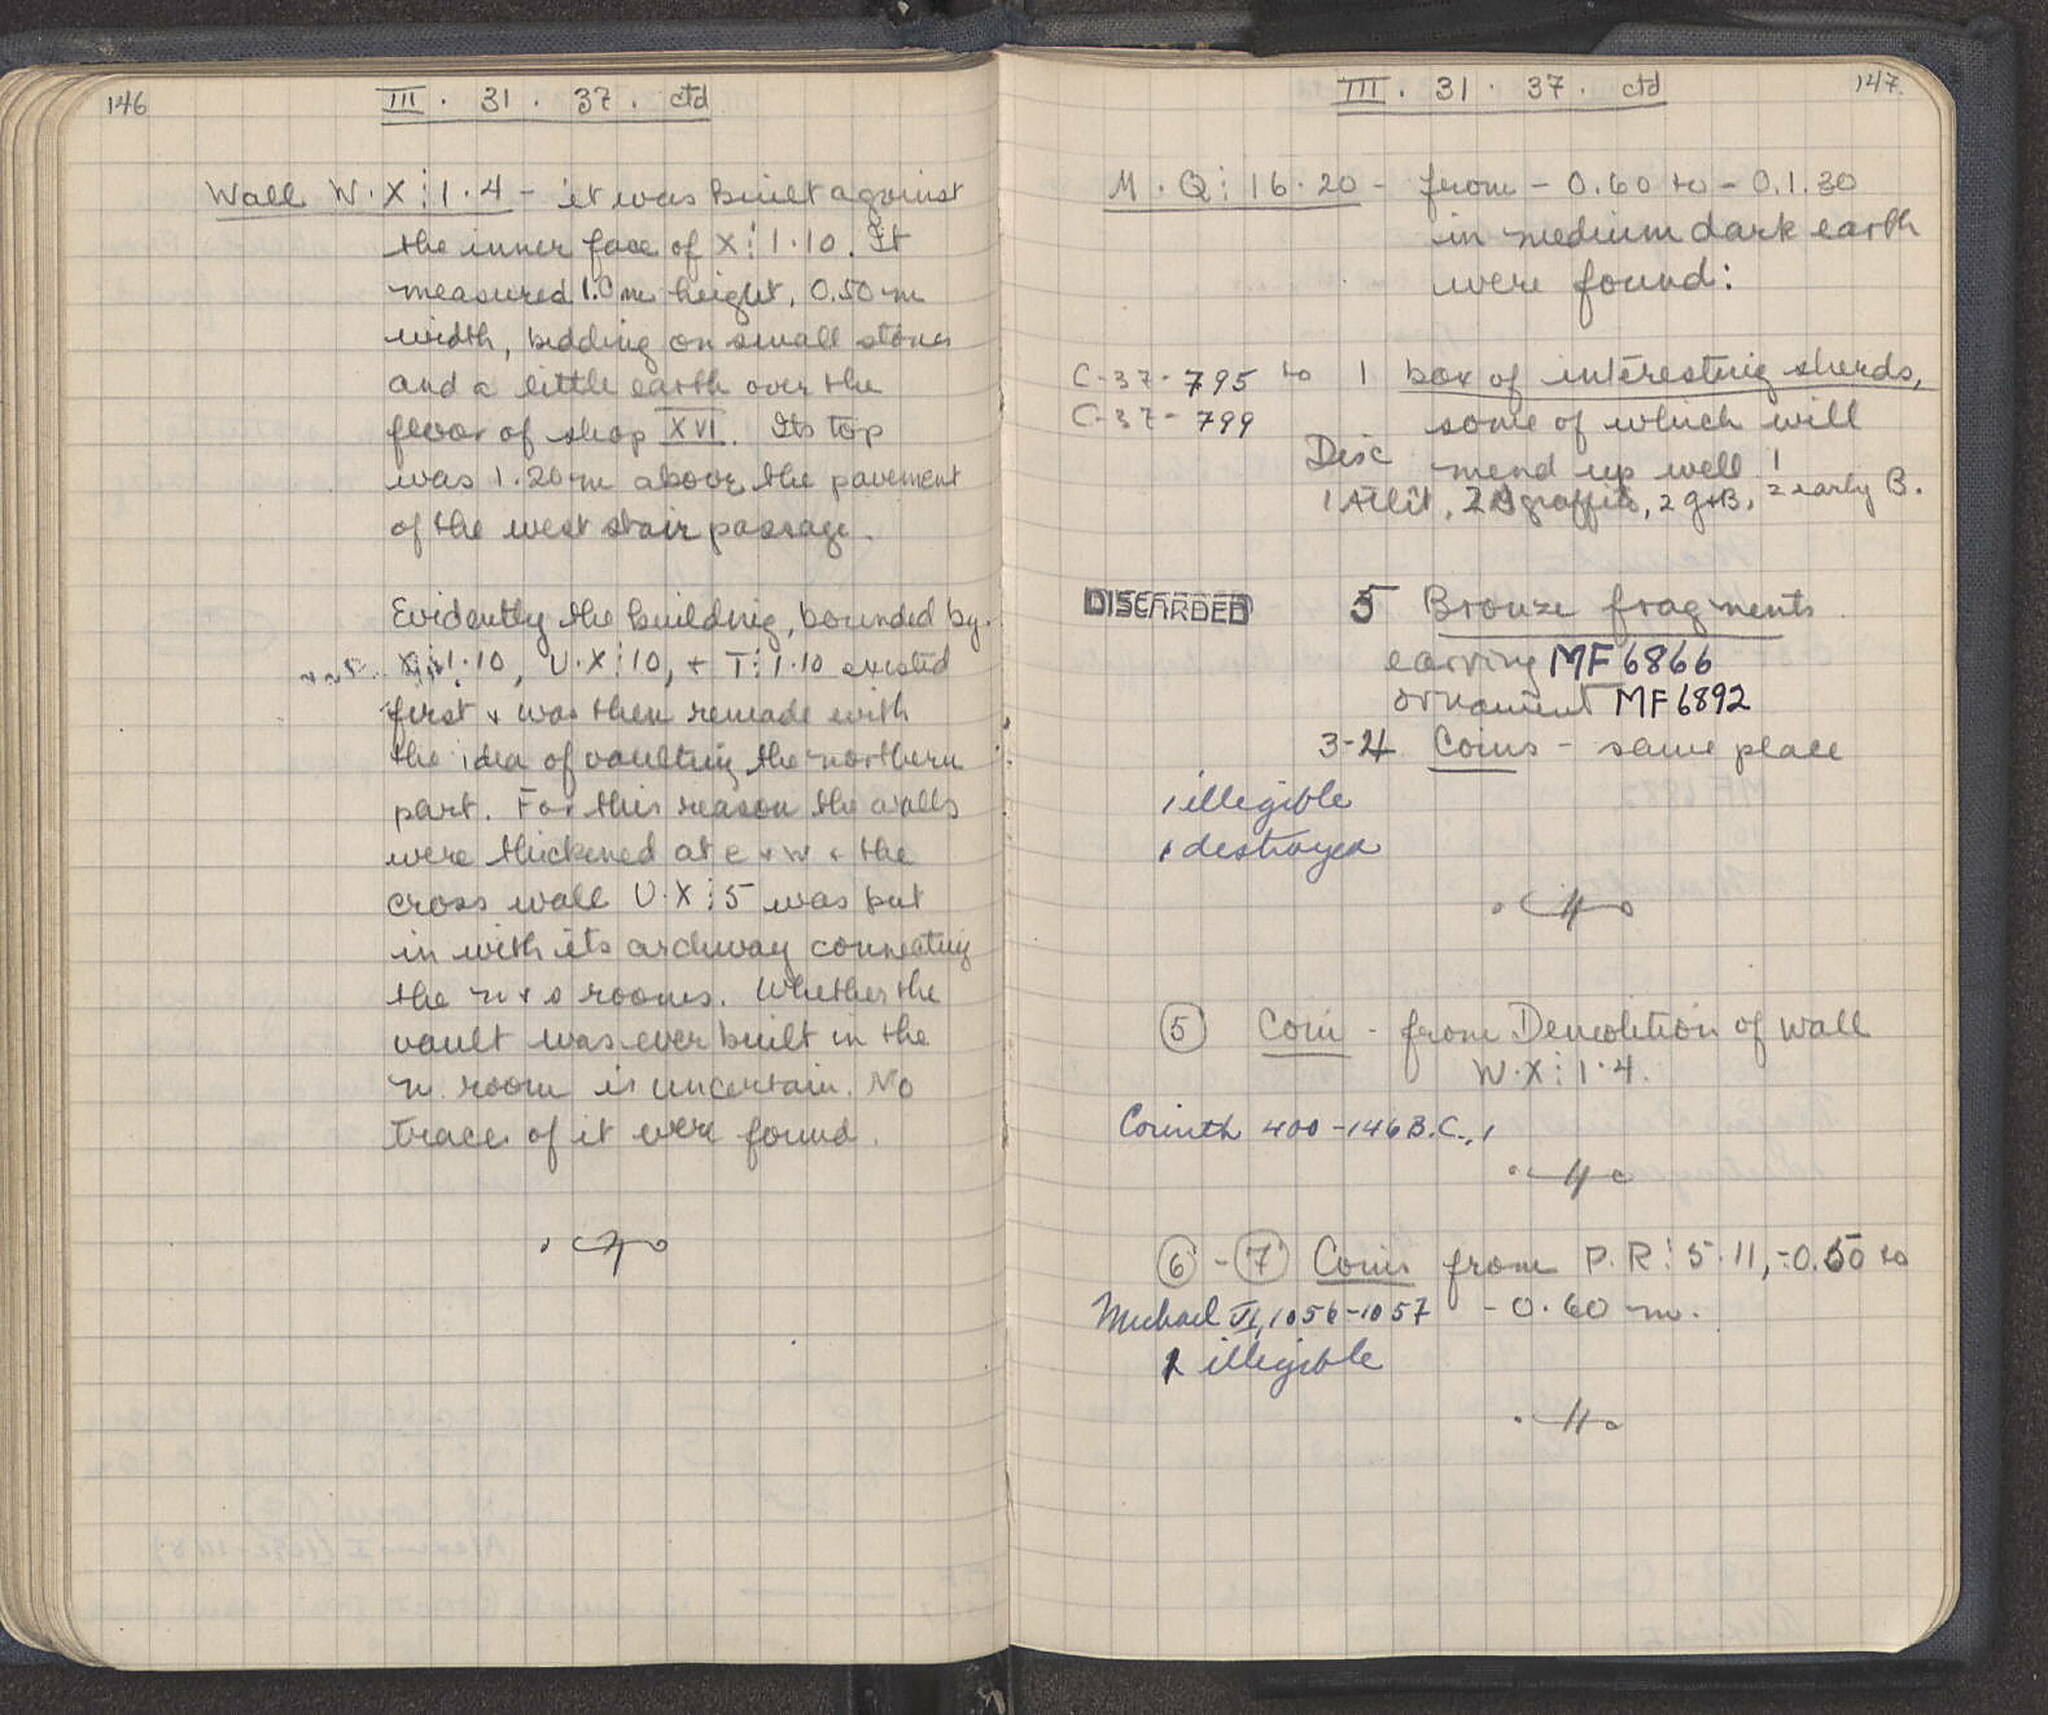 146
III . 31 . 37 . ctd
Wall W.X⋮1.4 - it was built against
the inner face of X⋮1.10. It
measured 1.0 m height, 0.50 m
width, bedding on small stones
and a little earth over the
floor of shop XVI. Its top
was 1.20 m above the pavement
of the west stair passage.
Evidently the building, bounded by
X⋮1.10, U.X⋮10, + T⋮1.10 existed
first + was then remade with
the idea of vaulting the northern
part. For this reason the walls
were thickened at e + w + the
cross wall U.X⋮5 was put
in with its archway connecting
the n + s rooms. Whether the
vault was ever built in the
n. room is uncertain. No
traces of it were found.
III . 31 . 37 . ctd
147
M.Q⋮16.20 - from - 0.60 to - 0.1.30
in medium dark earth
were found:
C-37-795 to 1 box of interesting sherds,
C-37-799 some of which will
Disc mend up well!
2 g+B, 2 early B.
DISCARDED 5 Bronze fragments
earring MF 6866
ornament MF 6892
3-4 Coins - same place
1 illegible
1 destroyed
5 Coin - from Demolition of wall
W.X⋮1.4.
Corinth 400-146 B.C., 1
6 - 7 Coins from P.R⋮5.11, -0.50 to
Michael VI, 1056-1057 -0.60 m.
1 illegible